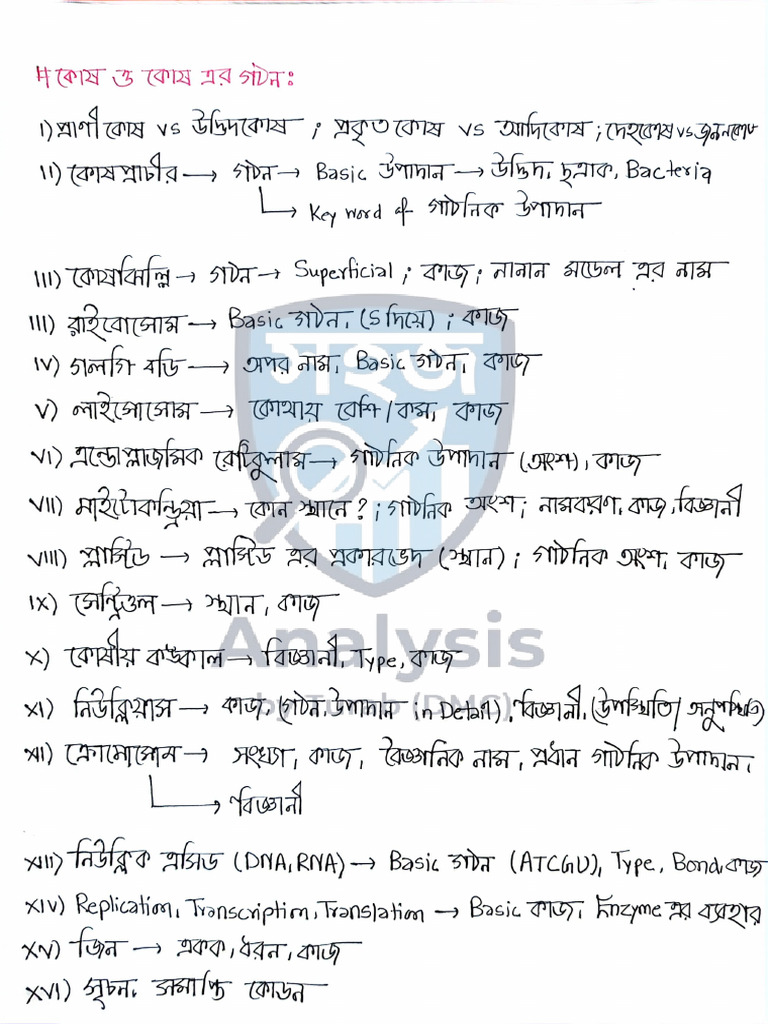 # কোষ ও কোষ এর গঠন:
i) প্রাণীকোষ vs উদ্ভিদকোষ ; প্রকৃতকোষ vs আদিকোষ ; দেহকোষ vs জননকোষ
ii) কোষপ্রাচীর → গঠন → Basic উপাদান → উদ্ভিদ, ছত্রাক, Bacteria
→ Key word of গাঠনিক উপাদান
iii) কোষঝিল্লি → গঠন → Superficial ; কাজ ; নানান মডেল এর নাম
iii) রাইবোসোম → Basic গঠন, (S দিয়ে) ; কাজ
সহজ
iv) গলগি বডি → অপর নাম, Basic গঠন, কাজ
v) লাইসোসোম → কোথায় বেশি/কম, কাজ
vi) এন্ডোপ্লাজমিক রেটিকুলাম → গাঠনিক উপাদান (অংশ), কাজ
vii) মাইটোকন্ড্রিয়া → কোন স্থানে? ; গাঠনিক অংশ ; নামকরণ, কাজ, বিজ্ঞানী
viii) প্লাস্টিড → প্লাস্টিড এর প্রকারভেদ (স্থান) ; গাঠনিক অংশ, কাজ
ix) সেন্ট্রিওল → স্থান, কাজ
Analysis
x) কোষীয় কঙ্কাল → বিজ্ঞানী, Type, কাজ
by (DMC)
xi) নিউক্লিয়াস → কাজ, (গঠন, উপাদান in Detail), বিজ্ঞানী, (উপস্থিতি/অনুপস্থিতি)
xii) ক্রোমোসোম → সংখ্যা, কাজ, বৈজ্ঞানিক নাম, প্রধান গাঠনিক উপাদান,
→ বিজ্ঞানী
xiii) নিউক্লিক এসিড (DNA, RNA) → Basic গঠন (ATCGU), Type, Bond, কাজ
xiv) Replication, Transcription, Translation → Basic কাজ, Enzyme এর ব্যবহার
xv) জিন → একক, ধরন, কাজ
xvi) সূচনা, সমাপ্তি কোডন